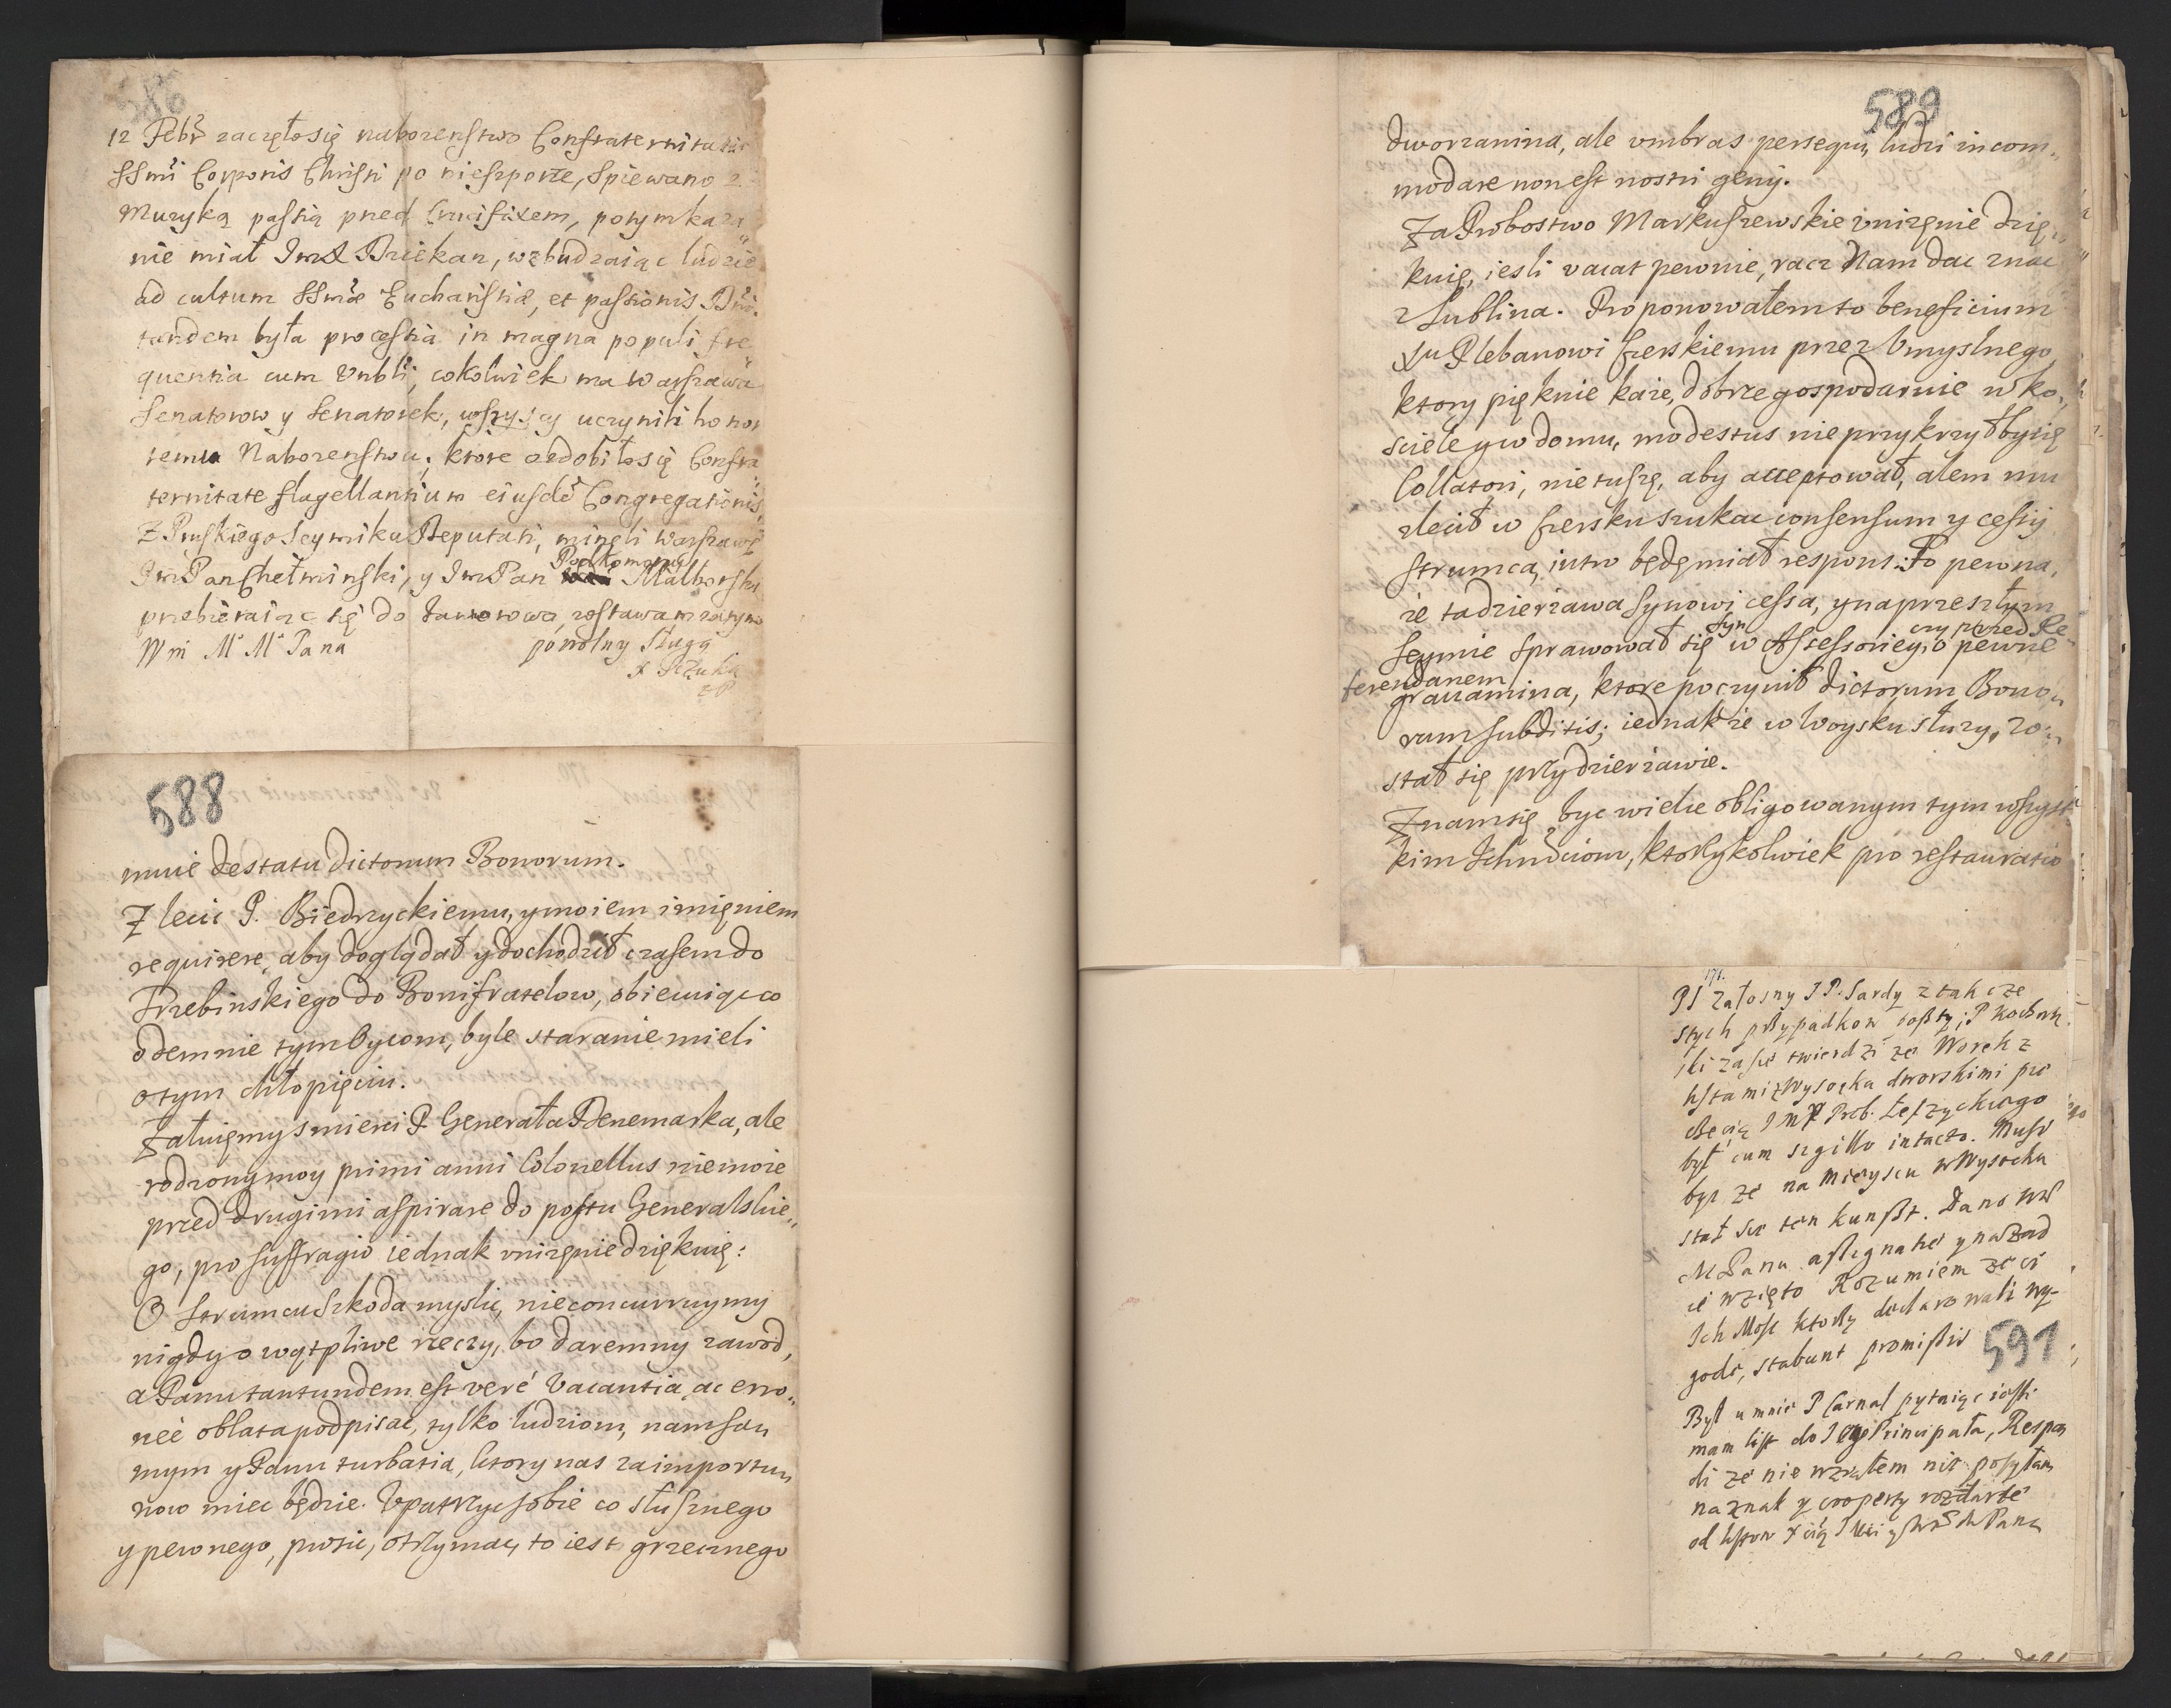 586
12 Febr zaczęło się nabozenstwo Confraternitatis
SSmi Corporis Christi po nieszporze, Spiewano z
Muzyką passią pred Crucifixem, potym kaza„
nie miał Jmx Dziekan, wzbudzaiąc ludzie
ad cultum SSmæ Eucharistiæ, et passionis Dni.
tandem była processia in magna populi fre„
quentia cum Vnbli, cokolwiek ma Warszawa
Senatorow y Senatorek, wszyscy uczynili honor
temu Nabozenstwu, ktore ozdobiło się Confra„
ternitate flagellantium eiusdẽ Congregationis.
Z Pruskiego Seymiku Deputati, mineli Warszawę
Podkomorzy
JmPan Chełminski, y JmPan Malborski
przebieraiąc się do Jaworowa, zostawam zatym
Wm M M Pana powolny Sługa
X Szczuka
588
mnie de statu dictorum Bonorum.
Zlecic P. Biedrzyckiemu, y moiem imięniem
requirere, aby doglądał y dochodził czasem do
Trzebinskiego do Bonifratelow, obiecuiąc co
odemnie tym Oycom, byle staranie mieli
o tym chłopięciu.
Załuięmy smierci P. Generała Denemarka, ale
rodzony moy primi anni Colonellus nie moze
przed drugimi aspirare do postu Generalskie„
go, pro suffragio iednak vnizęnie dziękuię:
O Strumcu szkoda myslic, nie concurruymy
nigdy o wątpliwe rzeczy, bo daremny zawod,
a Panu tantundem est veré Vacantia, ac erro„
neé oblata podpisac, tylko ludziom, nam sa„
mym y Panu turbatia, ktory nas za importu„
now miec będzie. Vpatrzyc sobie co słusznego
y pewnego, prosic, otrzymac, to iest grzecznego
589
dworzanina, ale vmbras persequi, ludzi incom„
modare non est nostri genij.
Za Probostwo Markuszewskie vnizęnie dzię„
kuię, iesli vacat pewnie, racz Nam dac znac
z Lublina. Proponowałem to beneficium
Xu Plebanowi Czerskiemu przez Vmyslnego,
ktory pięknie kaze, dobrze gospodaruie w ko„
sciele y w domu, modestus nie przykrzył by się
Collatori, nie tuszę, aby acceptował, alem mu
zlecił w Czersku szukac consensum y cessij
Strumca, iutro będę miał respons: To pewna,
ze ta dzierzawa synowi cessa, y na przeszłym
syn czy przed Re„
Seymie sprawował się w Assessoriey, o pewne
ferendarzem
grauamina, ktore poczynił dictorum Bono„
rum subditis; iednak ze w Woysku słuzy, zo„
stał się przy dzierzawie.
Znam się byc wielce obligowanym tym wszyst„
kim Ichmciom, ktorzykolwiek pro restauratio
171.
PS Załosny J P. Sardy z tak cze
stych przypadkow
ski zasie twierdzi ze Worek z
listami z Wysocka dworskimi prze
Jmx Prob. Łęszyckiego
był cum sigillo intacto. Musi
byc ze na mieyscu w Wysocku
stał sie ten kunszt. Dano WM
MPanu assignatie y nazad
ie wzięto Rozumiem ze ci
Ich Mosc ktorzy declarowali wy-
gode, stabunt promissis
591
Był u mnie P Carnal pytaiąc iesli
mam list do Principała, Respon
di ze nie wziąłem nic posyłam
na znak y coperty rozdarte
od listow